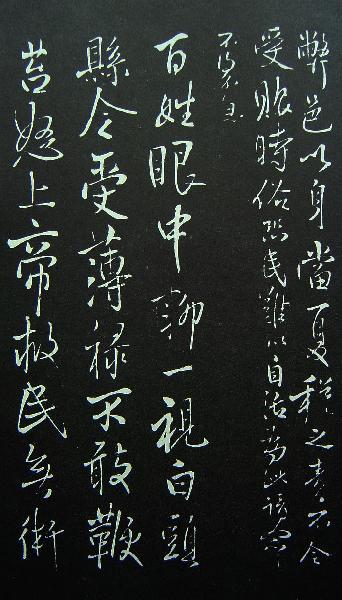 弊邑以身當夏稅之責不令
受賑時俗恐民難以自活為此
不得不
百姓眼中聊一視白頭
縣令受薄祿不敢鞭
笞怒上帝救民無術